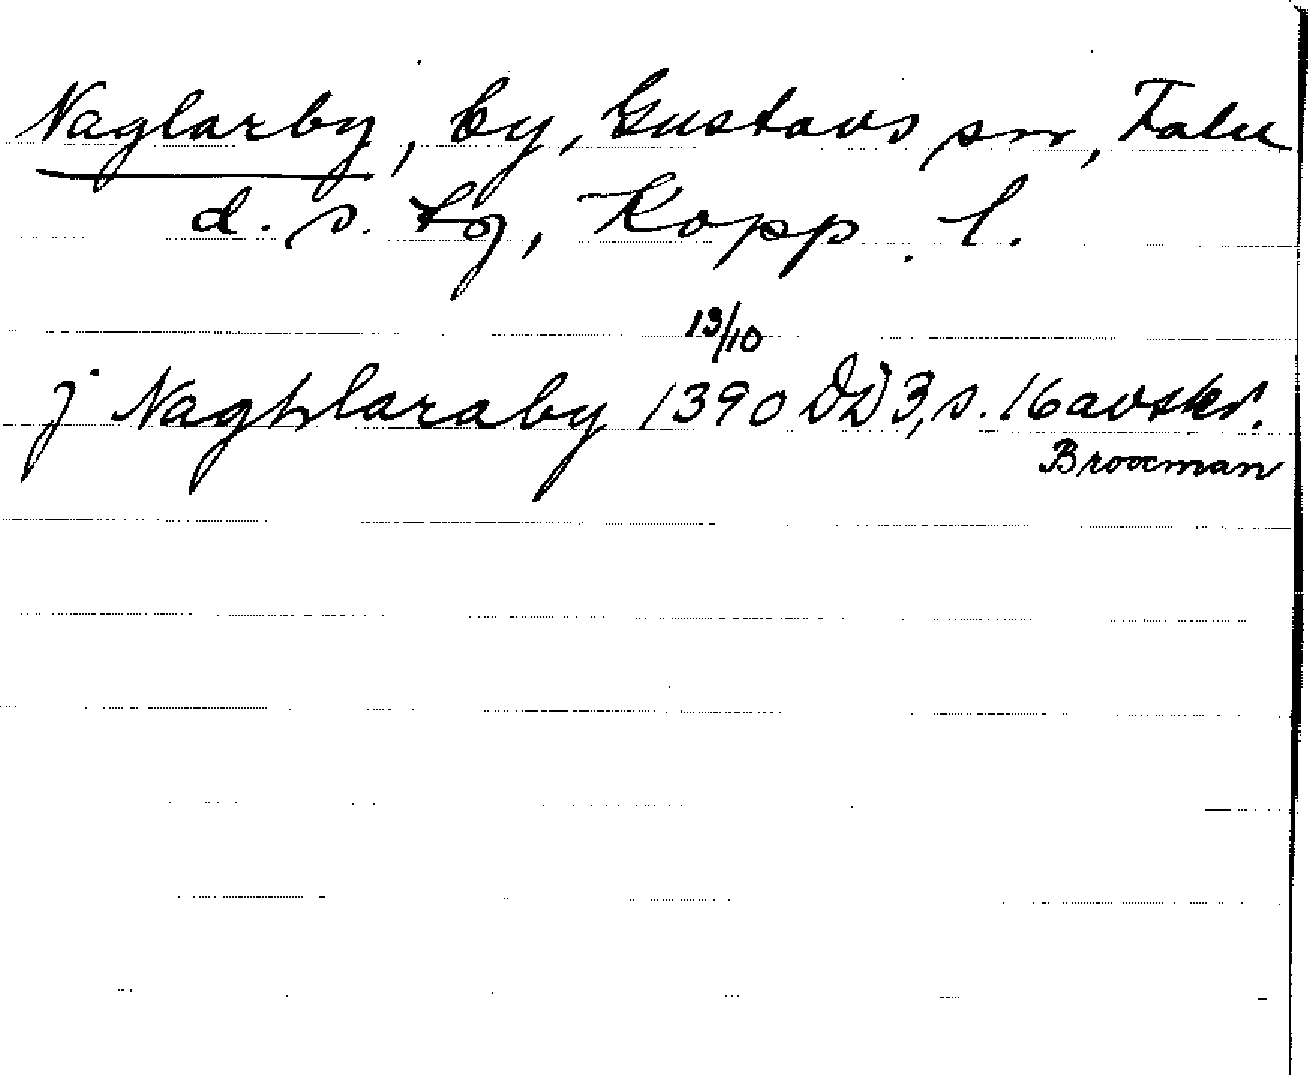 Naglarby, by, Gustavs sn, Falu
d. s. tg, Kopp. l.
13/10
j Naghlaraby 1390 DD 3, s. 16 avskr.
Brocman